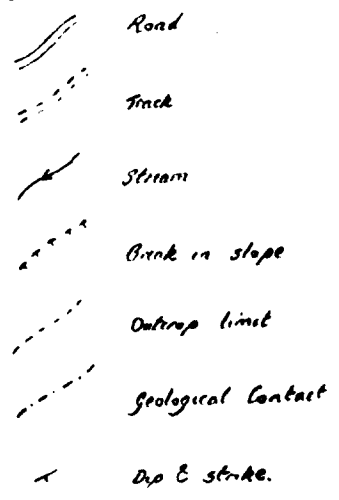 Road
Track
Stream
Break in slope
Outcrop limit
Geological Contact
Dip & strike.